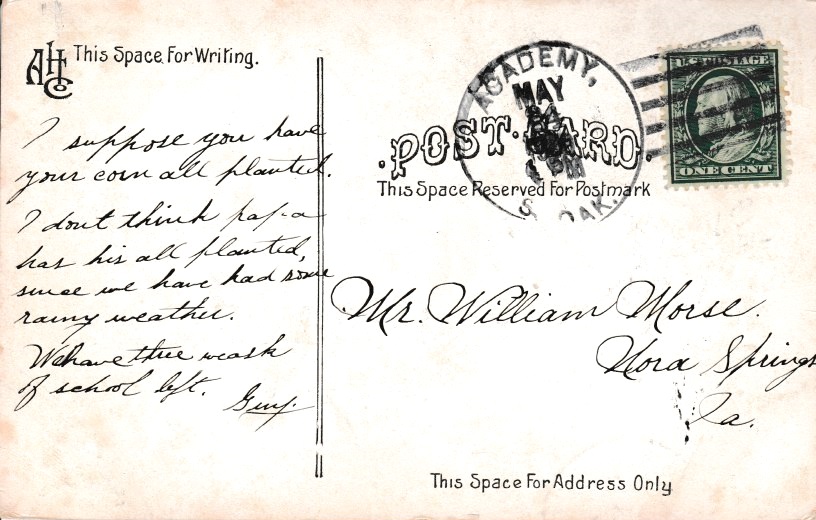 AHCo
This Space For Writing.
I suppose you have
your corn all planted.
I dont think papa
has his all planted,
since we have had some
rainy weather.
We have three weask
of school left.
ACADEMY,
MAY
S. DAK.
POST CARD.
This Space Reserved For Postmark
U.S. POSTAGE
ONE CENT
Mr. William Morse.
Nora Springs
Ia.
This Space For Address Only